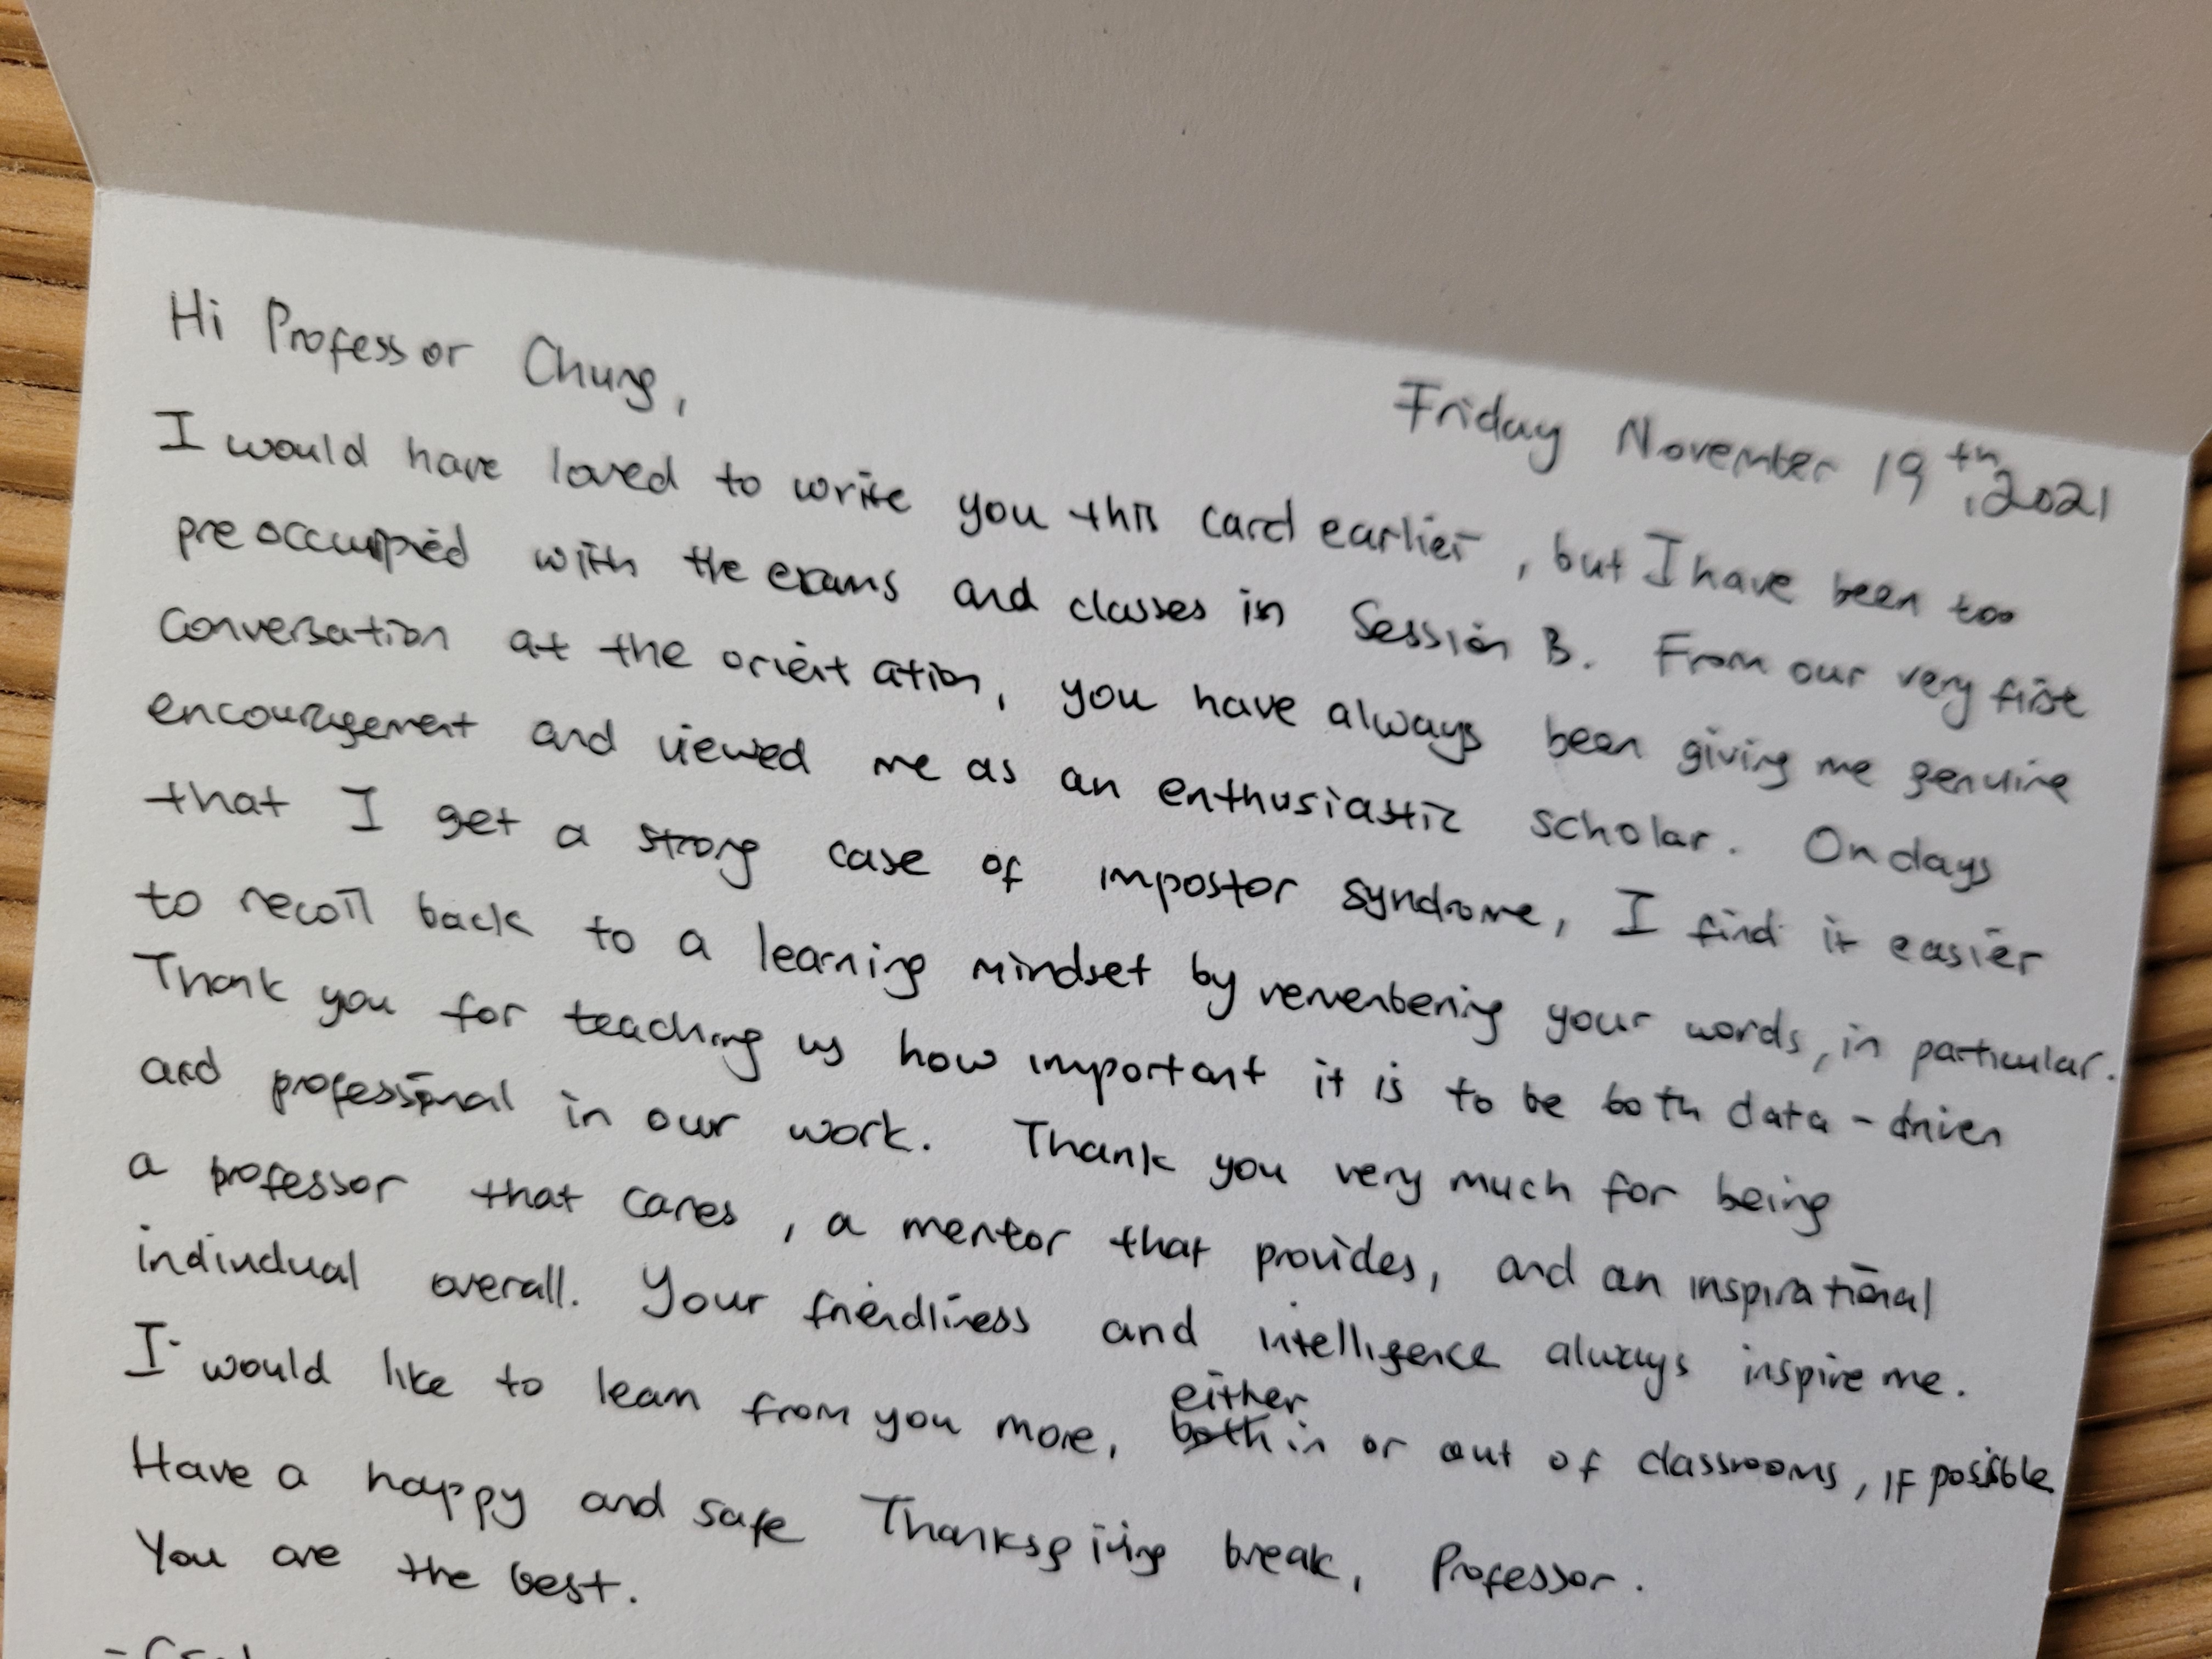 Hi Professor Chung,
Friday November 19th, 2021
I would have loved to write you this card earlier, but I have been too
preoccupied with the exams and classes in Session B. From our very first
conversation at the orientation, you have always been giving me genuine
encouragement and viewed me as an enthusiastic scholar. On days
that I get a strong case of impostor syndrome, I find it easier
to recoil back to a learning mindset by remembering your words, in particular.
Thank you for teaching us how important it is to be both data-driven
and professional in our work. Thank you very much for being
a professor that cares, a mentor that provides, and an inspirational
individual overall. Your friendliness and intelligence always inspire me.
either
I would like to learn from you more, both in or out of classrooms, if possible
Have a happy and safe Thanksgiving break, Professor.
You are the best.